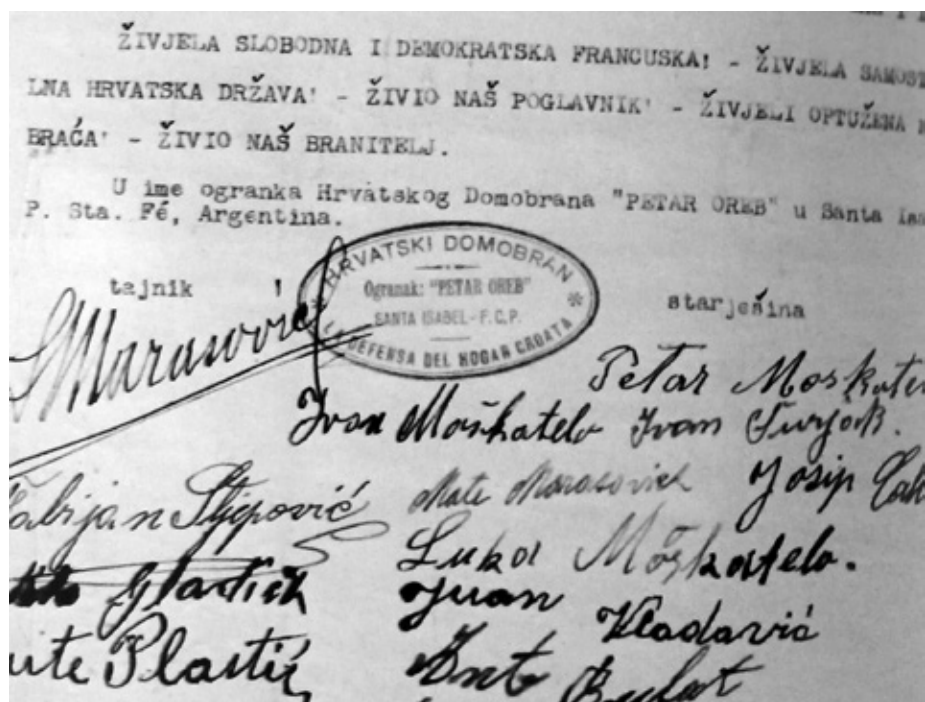 ŽIVJELA SLOBODNA I DEMOKRATSKA FRANCUSKA! - ŽIVJELA SAMOST
LNA HRVATSKA DRŽAVA! - ŽIVIO NAŠ POGLAVNIK! - ŽIVJELI OPTUŽENA N
BRAĆA! - ŽIVIO NAŠ BRANITELJ.
U ime ogranka Hrvatskog Domobrana "PETAR OREB" u Santa Isa
P. Sta. Fé, Argentina.
tajnik
starješina
HRVATSKI DOMOBRAN
Ogranak: "PETAR OREB"
SANTA ISABEL - F.C.P.
LA DEFENSA DEL HOGAR CROATA
Marasović
Petar Moskatelo
Ivan Moškatelo Ivan Turjak.
Fabijan Stjepović Mate Marasovich Josip
Luka Moškatelo.
Gladich Juan Vladavić
Ante Plastić Ante Bulat